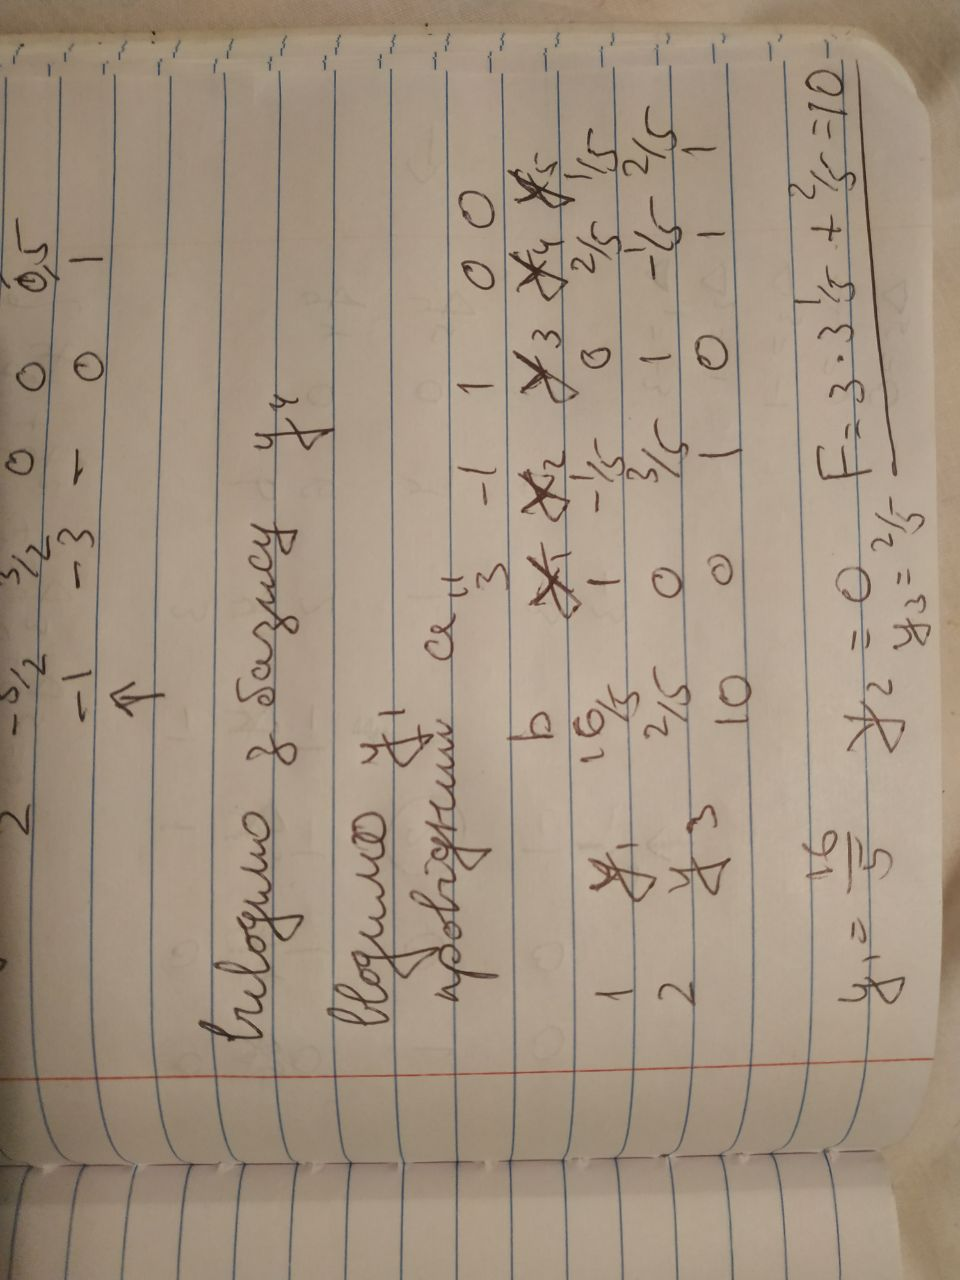 2 -5/2 3/2 0 0 0,5
-1 -3 - 0 1
↑
виводимо з базису y4
вводимо y1
провідний ел
3 -1 1 0 0
b y1 y2 y3 y4 y5
1 y1 16/5 1 -1/5 0 2/5 1/5
2 y3 2/5 0 3/5 1 -1/5 2/5
10 0 1 0 1 1
y1 = 16/5 y2 = 0 F = 3 · 3 1/5 + 2/5 = 10
y3 = 2/5